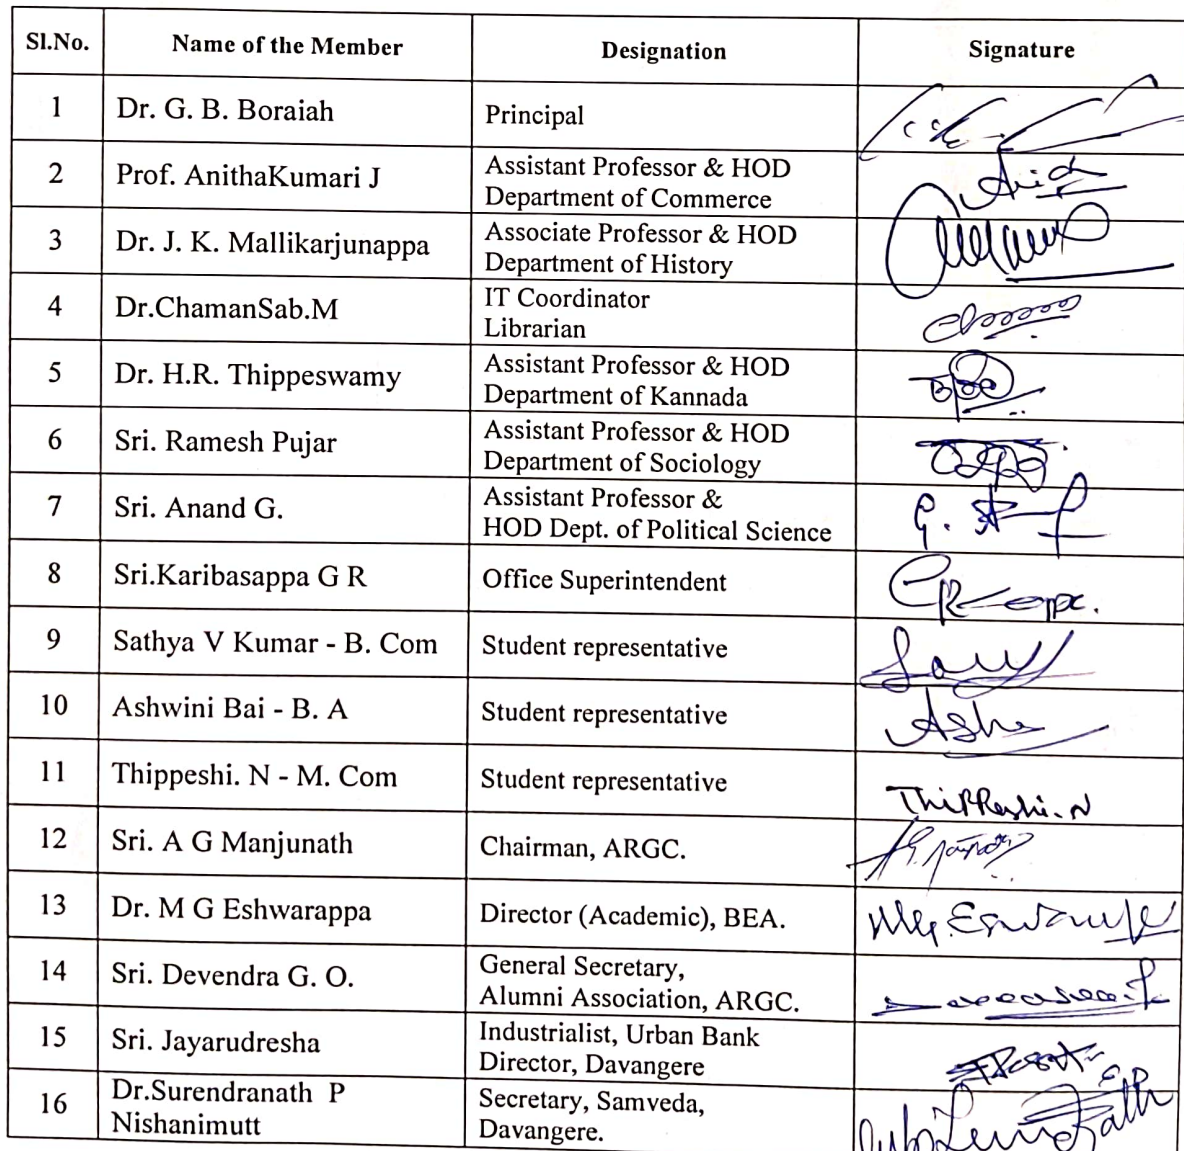 Sl.No. Name of the Member Designation Signature
1 Dr. G. B. Boraiah Principal
2 Prof. AnithaKumari J Assistant Professor & HOD
Department of Commerce
3 Dr. J. K. Mallikarjunappa Associate Professor & HOD
Department of History
4 Dr.ChamanSab.M IT Coordinator
Librarian
5 Dr. H.R. Thippeswamy Assistant Professor & HOD
Department of Kannada
6 Sri. Ramesh Pujar Assistant Professor & HOD
Department of Sociology
7 Sri. Anand G. Assistant Professor &
HOD Dept. of Political Science
8 Sri.Karibasappa G R Office Superintendent
9 Sathya V Kumar - B. Com Student representative
10 Ashwini Bai - B. A Student representative
11 Thippeshi. N - M. Com Student representative Thippeshi. N
12 Sri. A G Manjunath Chairman, ARGC.
13 Dr. M G Eshwarappa Director (Academic), BEA.
14 Sri. Devendra G. O. General Secretary,
Alumni Association, ARGC.
15 Sri. Jayarudresha Industrialist, Urban Bank
Director, Davangere
16 Dr.Surendranath P
Nishanimutt Secretary, Samveda,
Davangere.